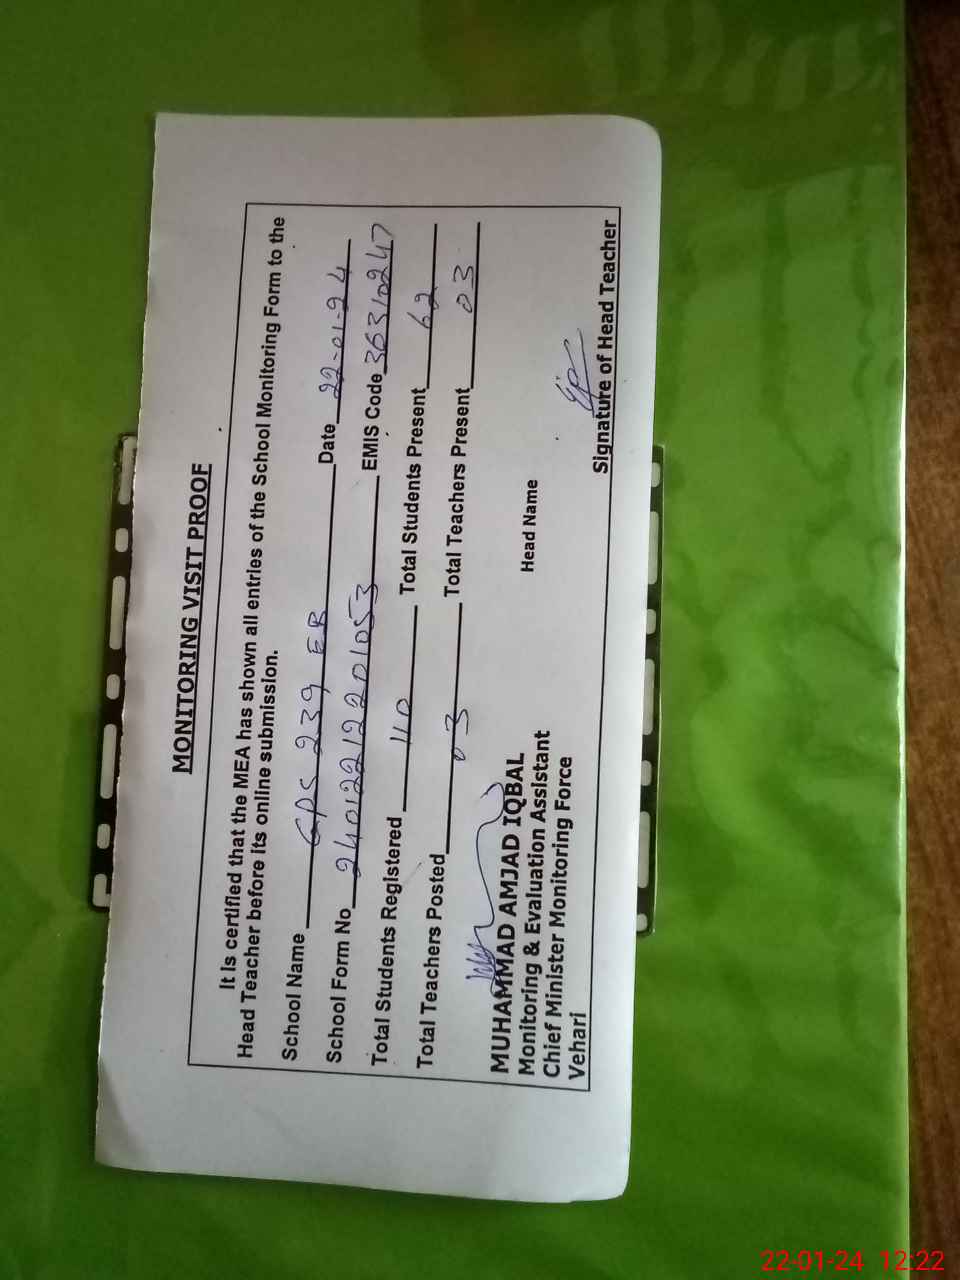 MONITORING VISIT PROOF
It is certified that the MEA has shown all entries of the School Monitoring Form to the
Head Teacher before its online submission.
School Name GPS 239 EB Date 22-01-24
School Form No 24012212201053 EMIS Code 36310247
Total Students Registered 110 Total Students Present 62
Total Teachers Posted 03 Total Teachers Present 03
MUHAMMAD AMJAD IQBAL
Monitoring & Evaluation Assistant Head Name
Chief Minister Monitoring Force
Vehari Signature of Head Teacher
22-01-24 12:22